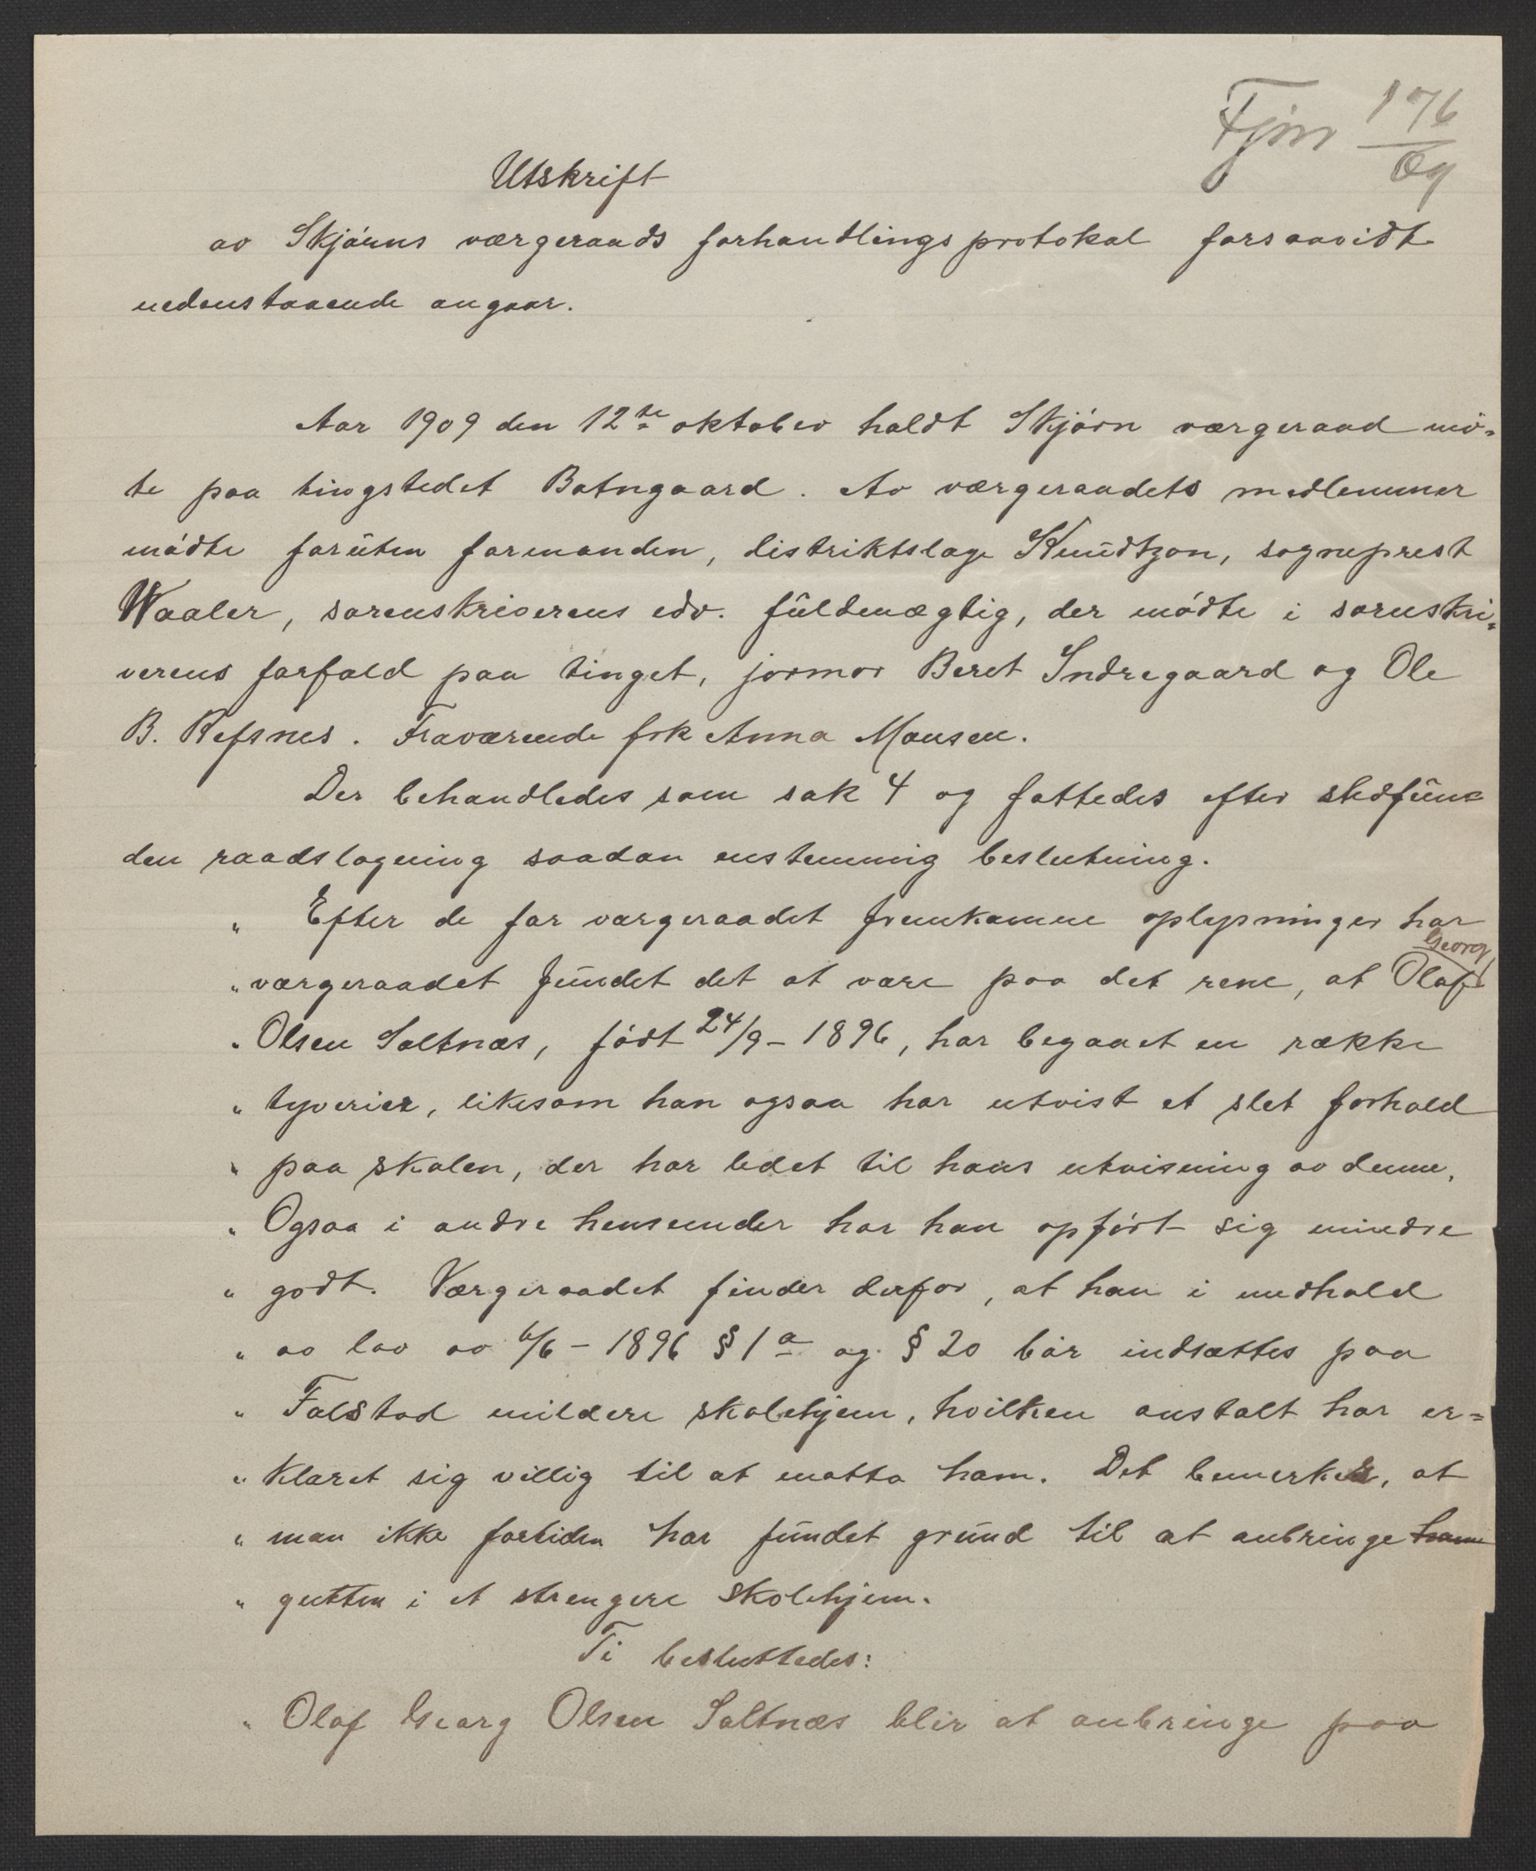 Fjm 176/09
Utskrift
av Skjørns værgeraads forhandlingsprotokol forsaavidt
nedenstaaende angaar.
Aar 1909 den 12te oktober holdt Skjørn værgeraad mø-
te paa tingstedet Botngaard. Av værgeraadets medlemmer
mødte foruten formanden, distriktslæge Knudtzon, sogneprest
Waaler, sorenskriverens edv. fuldmægtig, der mødte i sorenskri-
verens forfald paa tinget, jormor Beret Indregaard og Ole
B. Refsnes. Fraværende frk Anna Monsen.
Der behandledes som sak 4 og fattedes efter stedfun-
den raadslagning saadan enstemmig beslutning.
" Efter de for værgeraadet fremkomne oplysninger har
" værgeraadet fundet det at være paa det rene, at Olaf Georg
" Olsen Saltnæs, født 24/9 - 1896, har begaaet en række
" tyverier, likesom han ogsaa har utvist et slet forhold
" paa skolen, der har ledet til hans utvisning av denne.
" Ogsaa i andre henseender har han opført sig mindre
" godt. Værgeraadet finder derfor, at han i medhold
" av lov av 6/6 - 1896 § 1 a og § 20 bør indsættes paa
" Falstad mildere skolehjem, hvilken anstalt har er-
" klæret sig villig til at motta ham. Det bemerkes, at
" man ikke fortiden har fundet grund til at anbringe ham
" gutten i et strengere skolehjem.
Ti besluttedes:
" Olaf Georg Olsen Saltnæs blir at anbringe paa